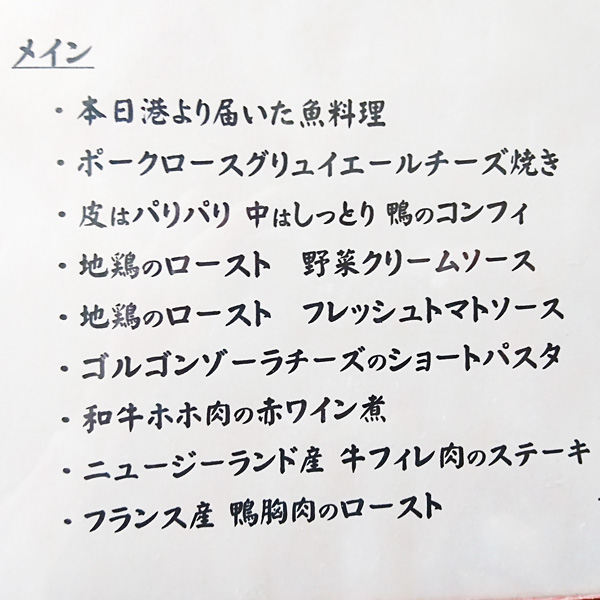 メイン
・本日港より届いた魚料理
・ポークロースグリュイエールチーズ焼き
・皮はパリパリ 中はしっとり 鴨のコンフィ
・地鶏のロースト　野菜クリームソース
・地鶏のロースト　フレッシュトマトソース
・ゴルゴンゾーラチーズのショートパスタ
・和牛ホホ肉の赤ワイン煮
・ニュージーランド産 牛フィレ肉のステーキ
・フランス産 鴨胸肉のロースト